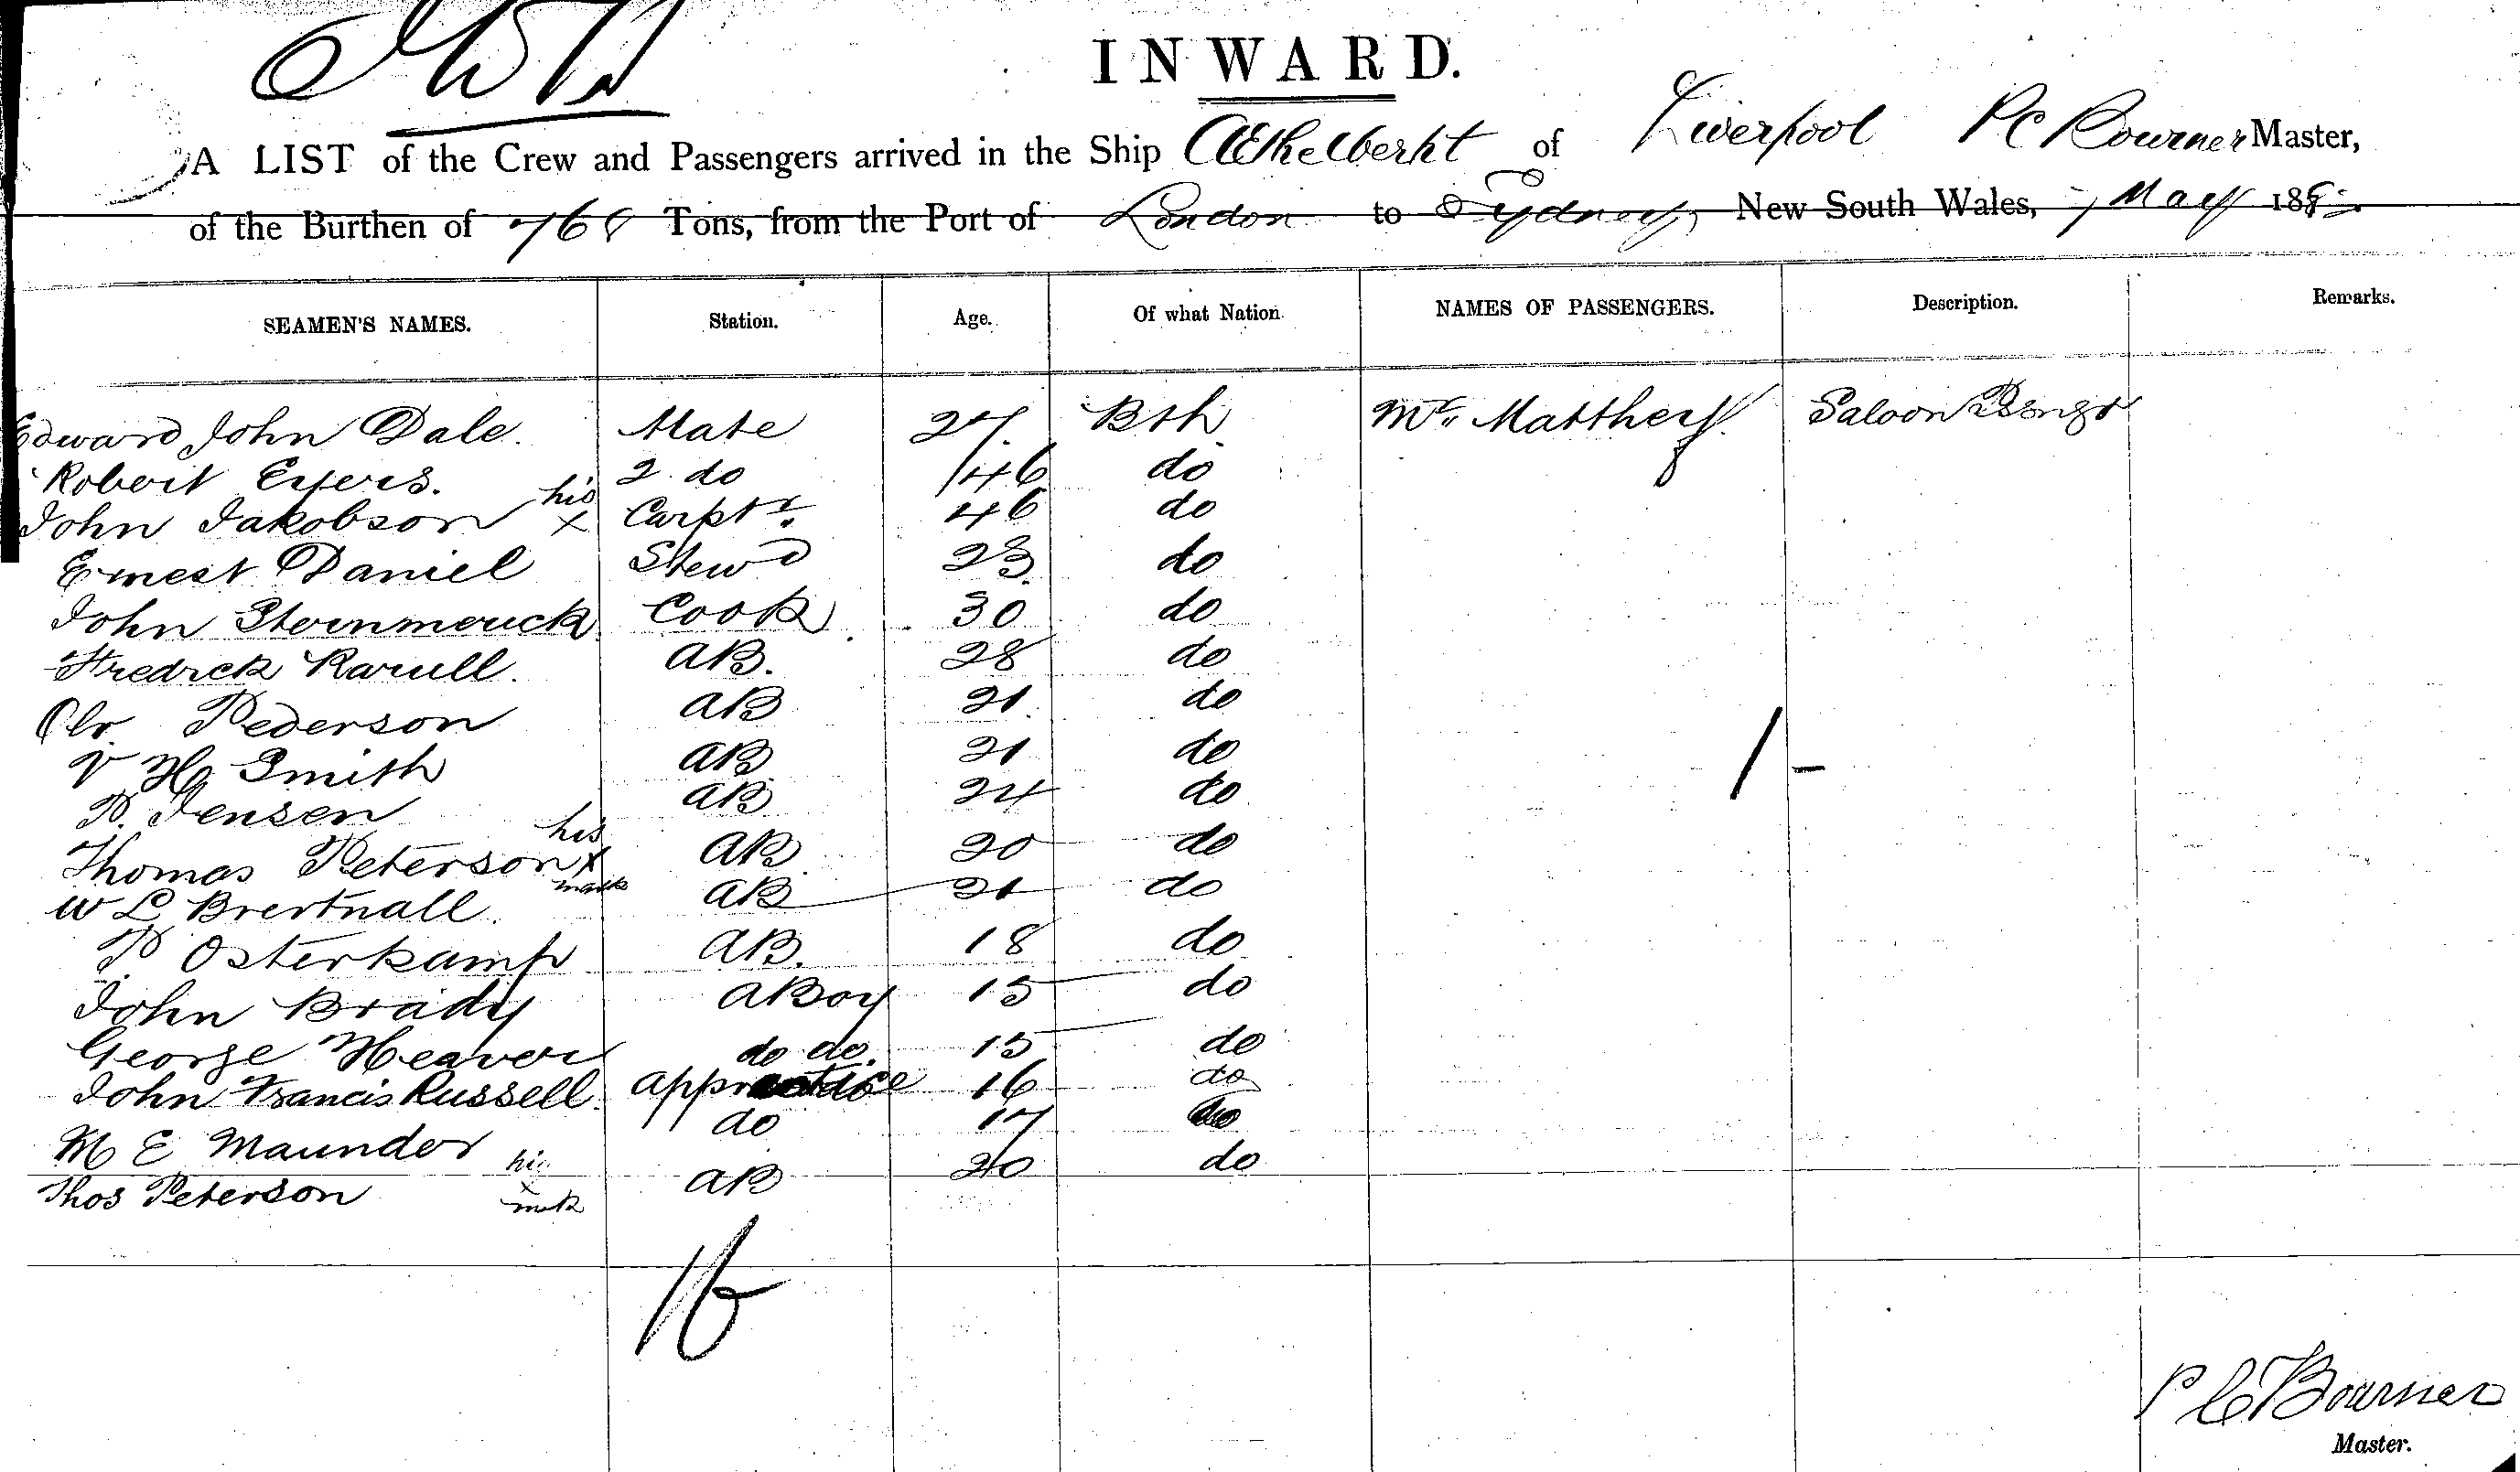 INWARD.
A LIST of the Crew and Passengers arrived in the Ship Æthelberht of Liverpool P C Bourner Master,
of the Burthen of 768 Tons, from the Port of London to Sydney, New South Wales, 7 May 188
SEAMEN'S NAMES. Station. Age. Of what Nation. NAMES OF PASSENGERS. Description. Remarks.
Edward John Dale. Mate 27. Bsh Mr. Matthey Saloon Psengr
Robert Eyers. 2 do 46 do
John Jakobson his x Carptr. 46 do
Ernest Daniel Stewd 23 do
John Sternmerick Cook 30 do
Fredrck Rarull. AB. 28 do
Pederson AB 21 do
V H Smith AB 21 do
P. Jensen AB 24 do
Thomas Peterson his x mark AB 20 do
W L Brertnall. AB 21 do
P Osterkamp AB. 18 do
John Brady A Boy 15 do
George Heaver do do. 15 do
John Francis Russell. apprentice 16 do
M E Maunder do 17 do
Thos Peterson his x mark AB 20 do
1 -
16
P C Bourner
Master.